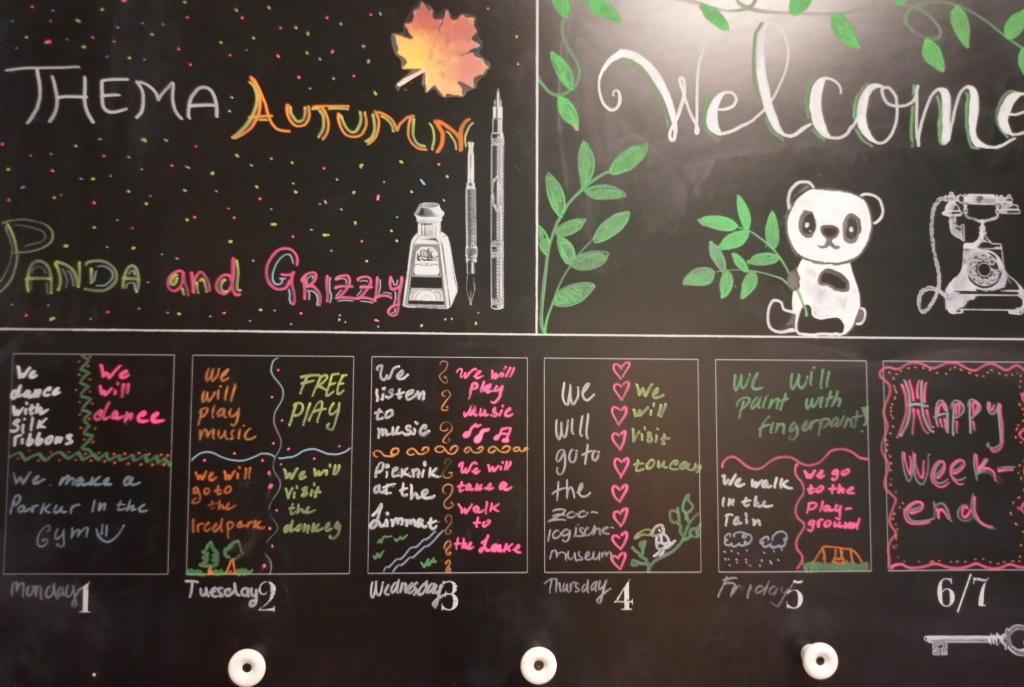 THEMA AUTUMN
Welcome
PANDA and GRIZZLY
We
dance
with
silk
ribbons
We
will
dance
We make a
Parkur in the
Gym
Monday 1
We
will
play
music
FREE
PLAY
We will
go to
the
Iredpark
We will
visit
the
donkey
Tuesday 2
We
listen
to
music
We will
play
music
Picknik
at the
Limmat
We will
take a
walk
to
the Lake
Wednesday 3
We
will
go to
the
Zoo-
logische
museum
We
will
visit
toucan
Thursday 4
We will
paint with
fingerpaint!
We walk
in the
rain
We go
to the
Play-
ground
Friday 5
HAPPY
Week-
end
6/7